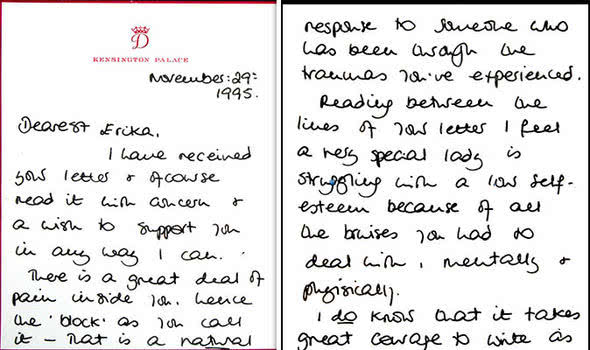 D
KENSINGTON PALACE
November: 29th
1995.
Dearest Erika,
I have received
your letter & ofcourse
read it with concern &
a wish to support you
in any way I can.
There is a great deal of
pain inside you, hence
the 'block' as you call
it – that is a natural
response to someone who
has been through the
traumas you've experienced.
Reading between the
lines of your letter I feel
a very special lady is
struggling with a low self-
esteem because of all
the bruises you had to
deal with, mentally &
physically.
I do know that it takes
great courage to write as